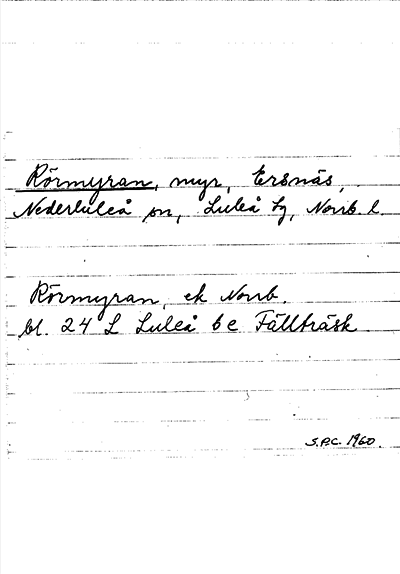 Rörmyran, myr, Ersnäs,
Nederluleå sn, Luleå tg, Norrb. l.
Rörmyran, ek Norrb.
bl. 24 L Luleå 6 e Fällträsk
S.P.C. 1960.